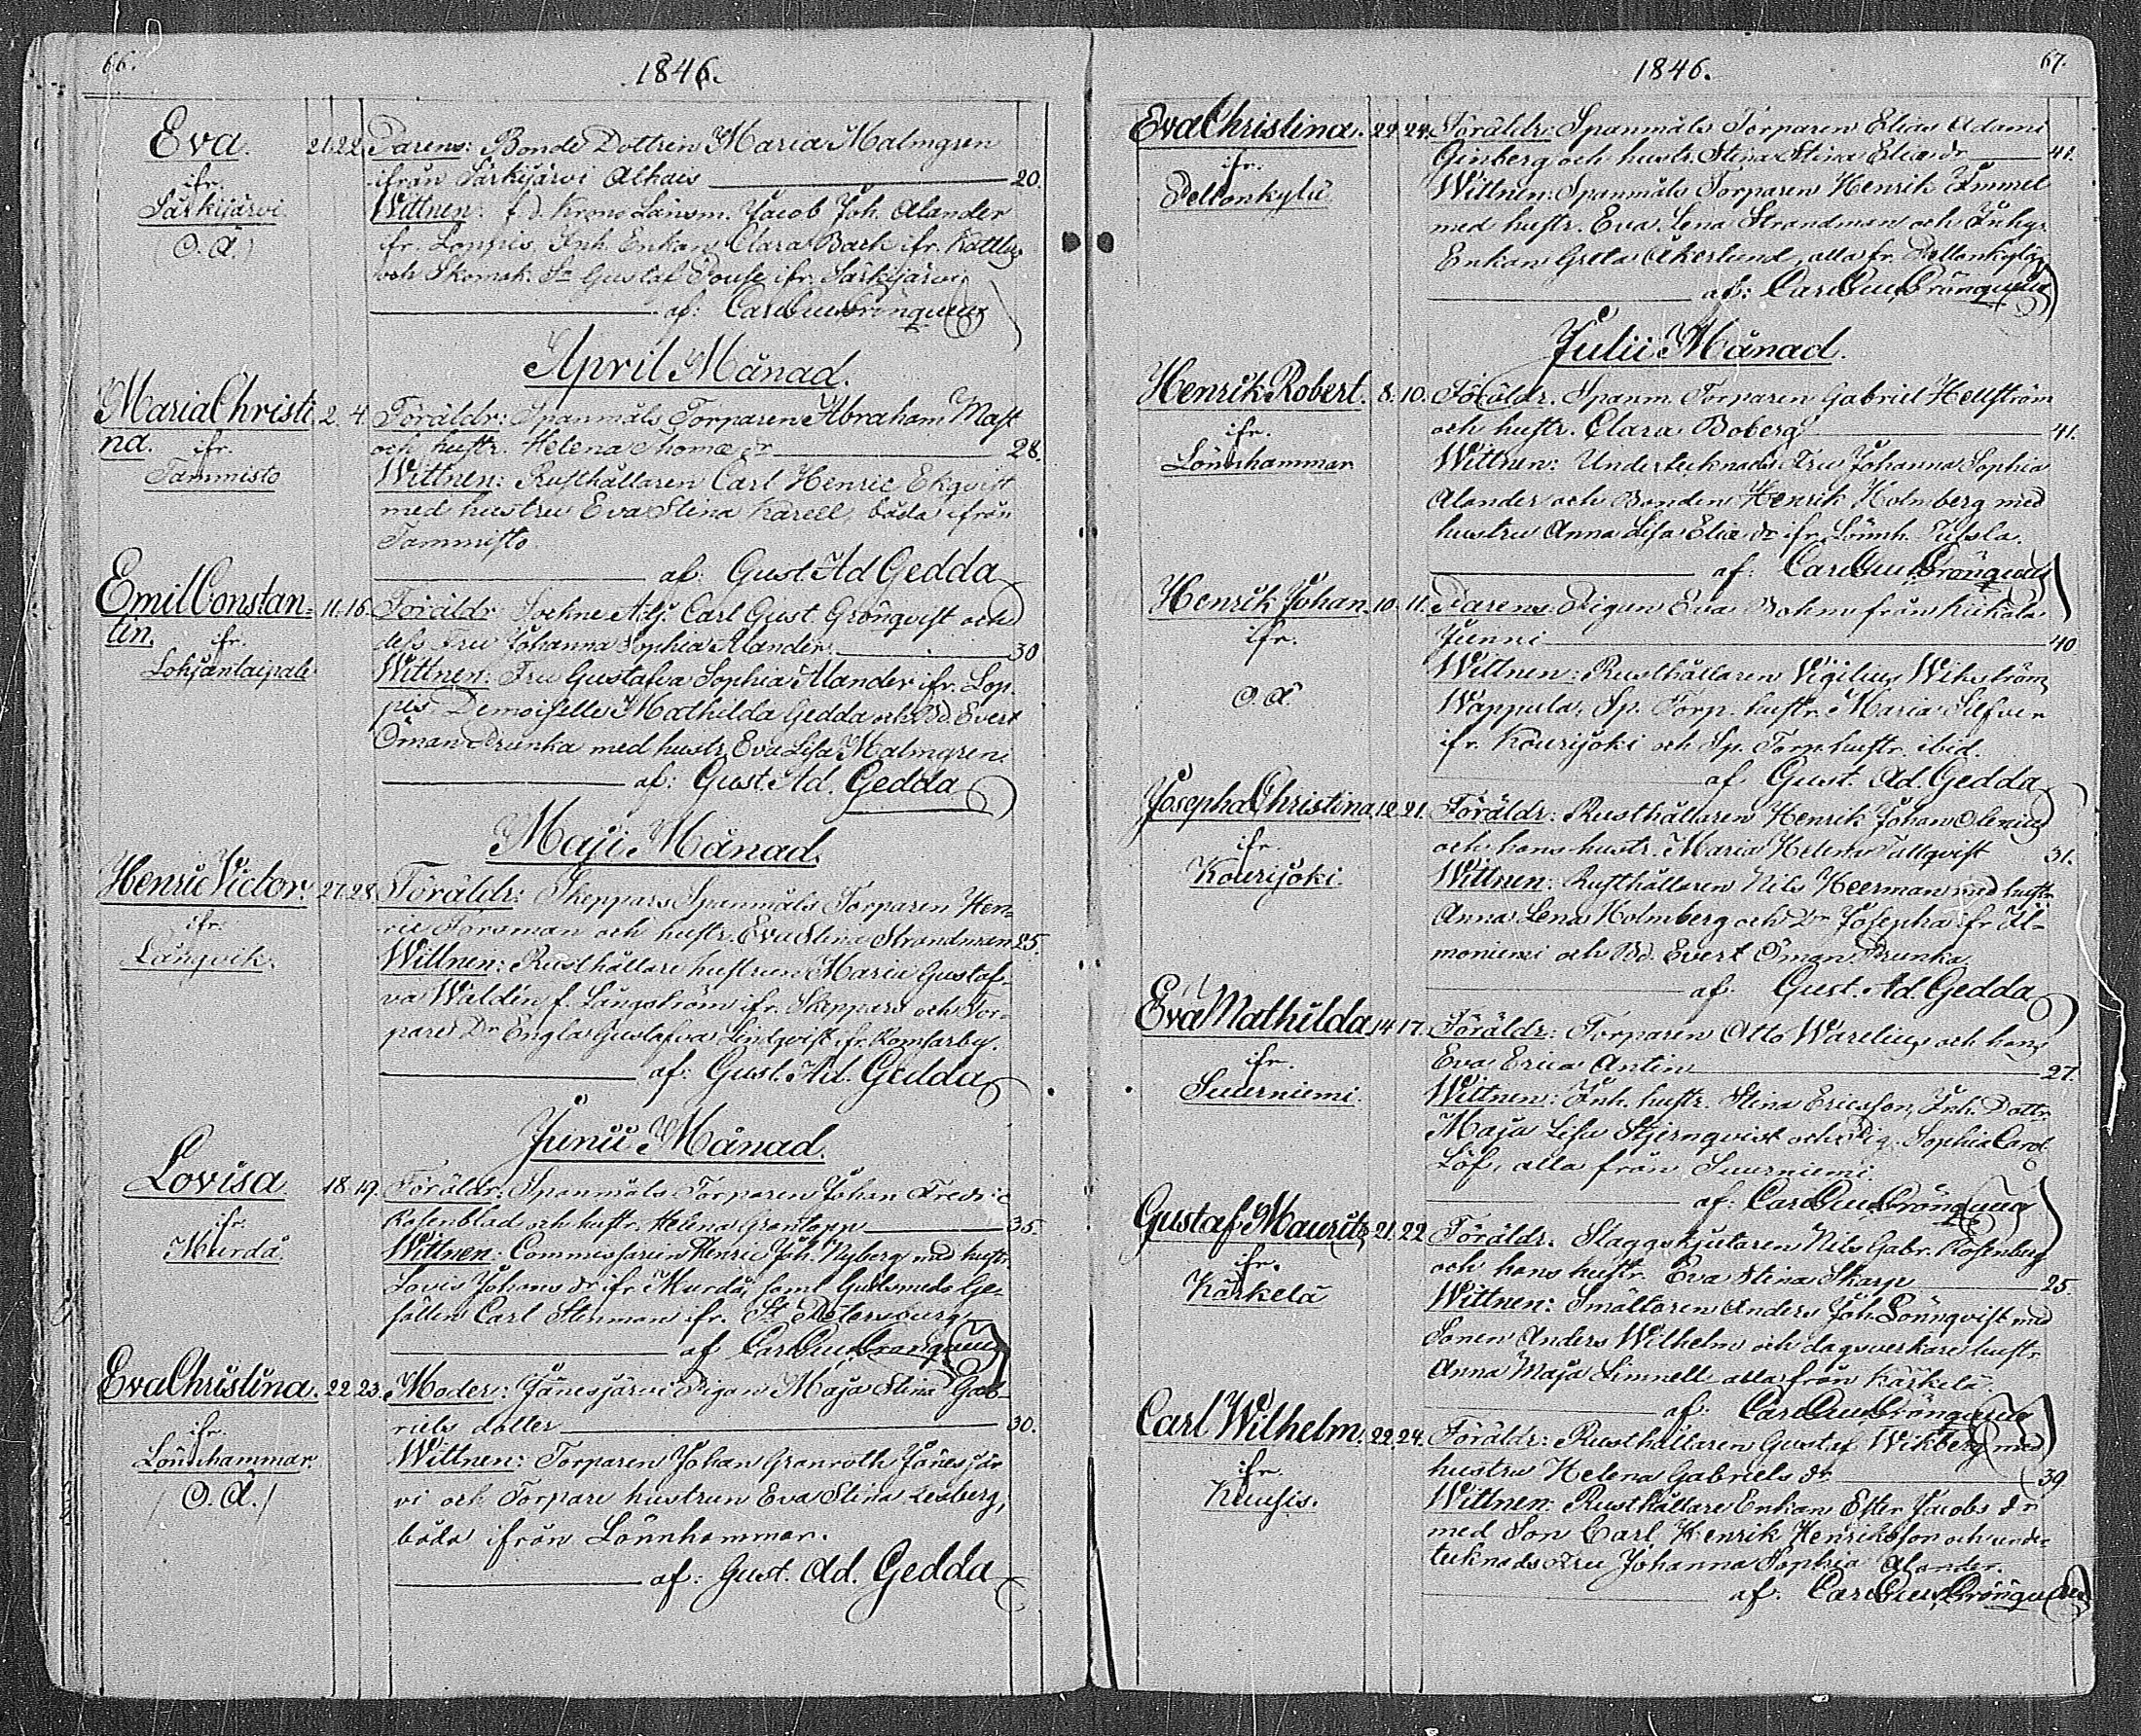 66.
1846.
Eva. 21. 22. Parens: Bonde Dottren Maria Malmgren
ifr. ifrån Särkijärvi Alhais 20.
Särkijärvi. Wittnen: f. d. Krono Länsm. Jacob Joh. Alander
(O. Ä.) ifr. Loppis, Inh. Enkan Clara Back ifr.
och Skomak. Sn Gustaf ifr. Särkijärvi.
af: Carl Gust Grönqvist
April Månad.
Maria Christi- 2. 4. Föräldr: Spanmåls Torparen Abraham Mast
na. ifr. och hustr. Helena Thomæ dr 28.
Tammisto Wittnen: Rusthållaren Carl Henric Ekqvist
med hustru Eva Stina Karell, båda ifrån
Tammisto.
af: Gust. Ad Gedda
Emil Constan= 11. 16. Föräldr: Sockne Adj. Carl Gust. Grönqvist och
tin. ifr. dess Fru Johanna Sophia Alander 30
Lohjantaipale Wittnen: Fru Gustafva Sophia Alander ifr. Lop-
pis Demoiselle Mathilda Gedda och Bd. Evert
Öman Prunka med hustr. Eva Lisa Malmgren.
af: Gust. Ad. Gedda
Maji Månad.
Henric Victor. 27. 28. Föräldr: Skeppars Spanmåls Torparen Hen-
ifr. ric Forsman och hustr. Eva Stina Strandman 25.
Långvik. Wittnen: Rusthållare hustrun Maria Gustaf-
va Waldén f. Långström ifr. Skeppars och Tor-
pares Dr Engla Gustafva Lindqvist ifr. Komsarby.
af: Gust. Ad. Gedda
Junii Månad.
Lovisa 18. 19. Föräldr: Spanmåls Torparen Johan Fredric
ifr. Rosenblad och hustr. Helena 35.
Murdå. Wittnen: Commissarien Henric Joh. Nyberg med hustr.
Lovis Johans dr ifr. Murdå, samt Guldsmeds Ge-
sällen Carl Stenman ifr. St. Petersburg
af Carl Gust Grönqvist
Eva Christina. 22. 23. Moder: Jänesjärvi Pigan Maja Stina Gab-
ifr. riels dotter 30.
Lönnhammar. Wittnen: Torparen Johan Granroth Jänesjär
(O. Ä.) vi och Torpare hustrun Eva Stina Lesberg,
båda ifrån Lönnhammar.
af: Gust. Ad. Gedda
1846.
67.
Eva Christina. 22. 24. Föräldr: Spanmåls Torparen Elias Adami
ifr. Ginberg och hustr. Stina Stina Eliæ dr 41.
Peltonkylä Wittnen: Spanmåls Torparen Henrik Immel
med hustr. Eva Lena Strandman och Inhys
Enkan Greta Åkerlund, alla fr. Peltonkylä.
af: Carl Gust Grönqvist
Julii Månad.
Henrik Robert. 8. 10. Föräldr. Spanm. Torparen Gabriel Hellström
ifr. och hustr. Clara Boberg 41.
Lönnhammar Wittnen: Undertecknads Fru Johanna Sophia
Alander och Bonden Henrik Holmberg med
hustru Anna Lisa Eliæ dr ifr. Lönnh.
af: Carl Gust Grönqvist
Henrik Johan 10. 11. Parens: Pigan Eva från Kuikala
ifr. Junni 40
O. Ä. Wittnen: Rusthållaren Vigilius Wikström,
Wappula, Sp. Torp. hustr. Maria Silfver
ifr. Kourijoki och Sp. Torp. hustr. ibid.
af Gust. Ad. Gedda
Josepha Christina 12. 21. Föräldr: Rusthållaren Henrik Johan Olenius
ifr. och hans hustr. Maria Helena Tallqvist 31.
Kourijoki. Wittnen: Rusthållaren Nils Heerman med hustr.
Anna Lena Holmberg och Dr Josepha ifr. Il-
moniemi och Bd. Evert Öman Prunka
af: Gust. Ad. Gedda
Eva Mathilda 14. 17. Föräldr: Torparen Otto Warelius och hans
ifr. Eva Erica Antin 27.
Suurniemi. Wittnen: Inh. hustr. Stina Ericsson, Inh. Dottr.
Maja Lisa Stjernqvist och Pig. Sophia Carol.
Löf, alla från Suurniemi.
af: Carl Gust Grönqvist
Gustaf Mauritz 21. 22 Föräldr. Slaggskjutaren Nils Gabr. Rosenberg
ifr. och hans hustr. Eva Stina Skarp 25.
Kärkelä Wittnen: Smältaren Anders Joh. Lönnqvist med
Sonen Anders Wilhelm och dagsverkare hustr.
Anna Maja Limnell alla från Kärkelä.
af: Carl Gust Grönqvist
Carl Wilhelm. 22. 24. Föräldr: Rusthållaren Gustaf Wikberg med
ifr. hustru Helena Gabriels dr 39
Kuusis. Wittnen: Rusthållare Enkan Ester Jacobs dr
med Son Carl Henrik Henriksson och under
tecknads Fru Johanna Sophia Alander.
af: Carl Gust Grönqvist